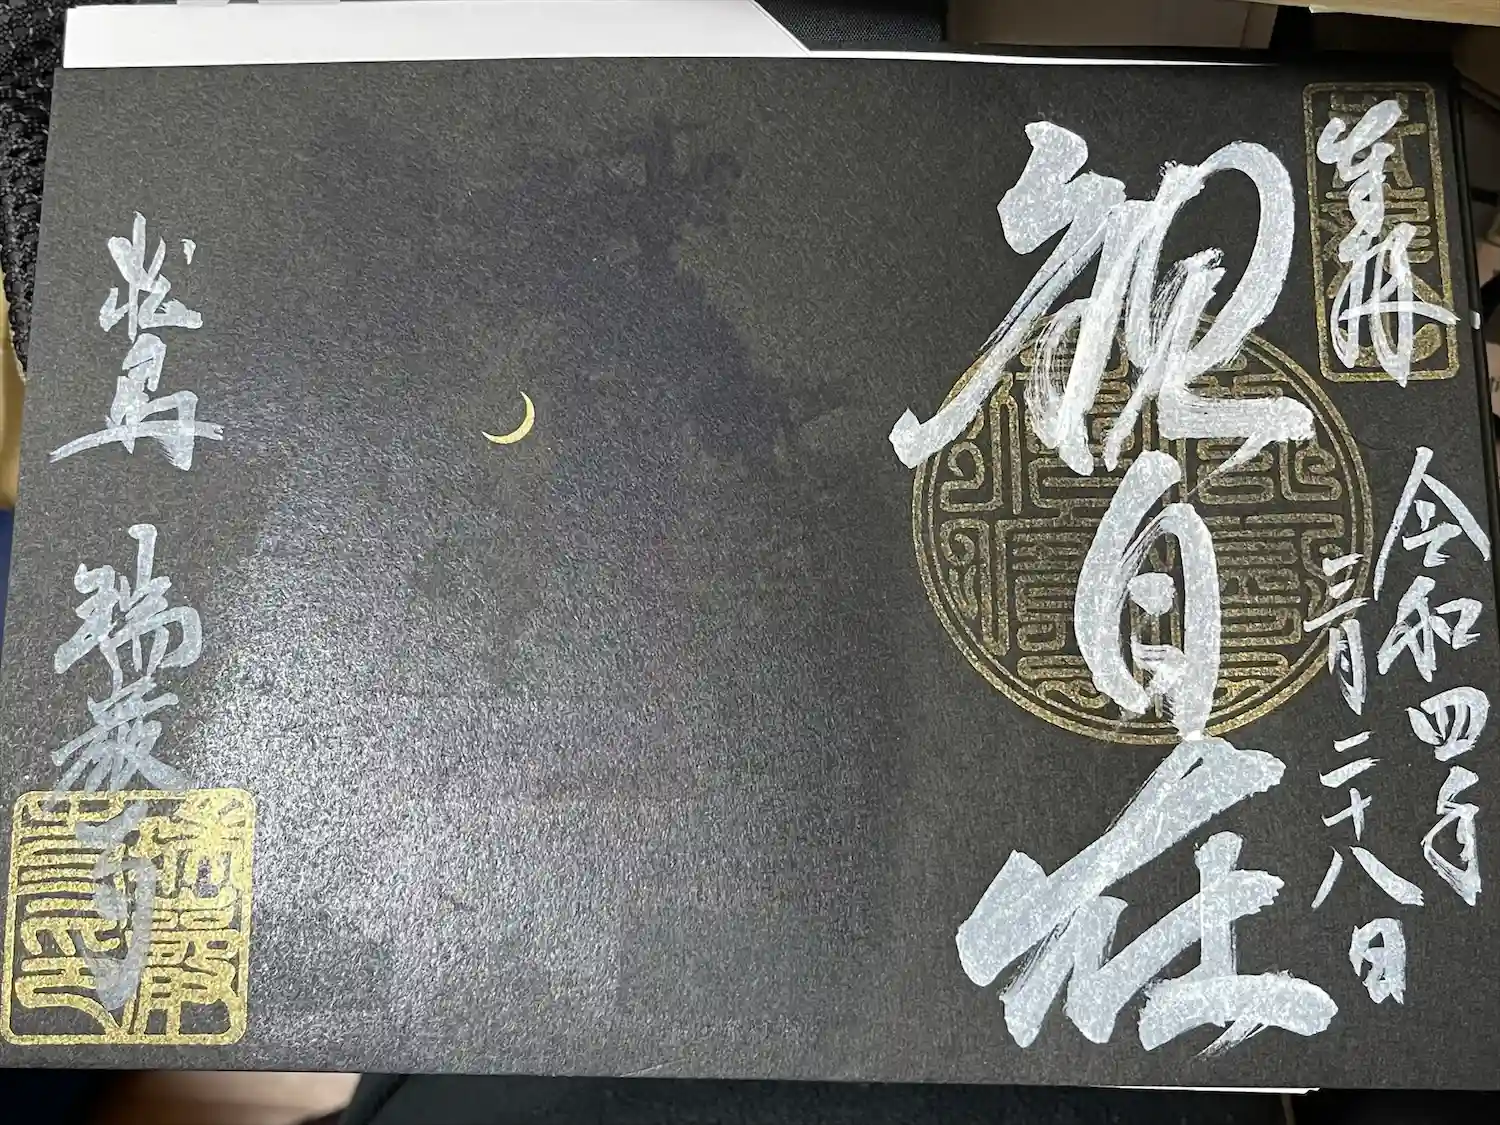 奉拝
令和四年
三月二十八日
観自在
松島
瑞巌寺